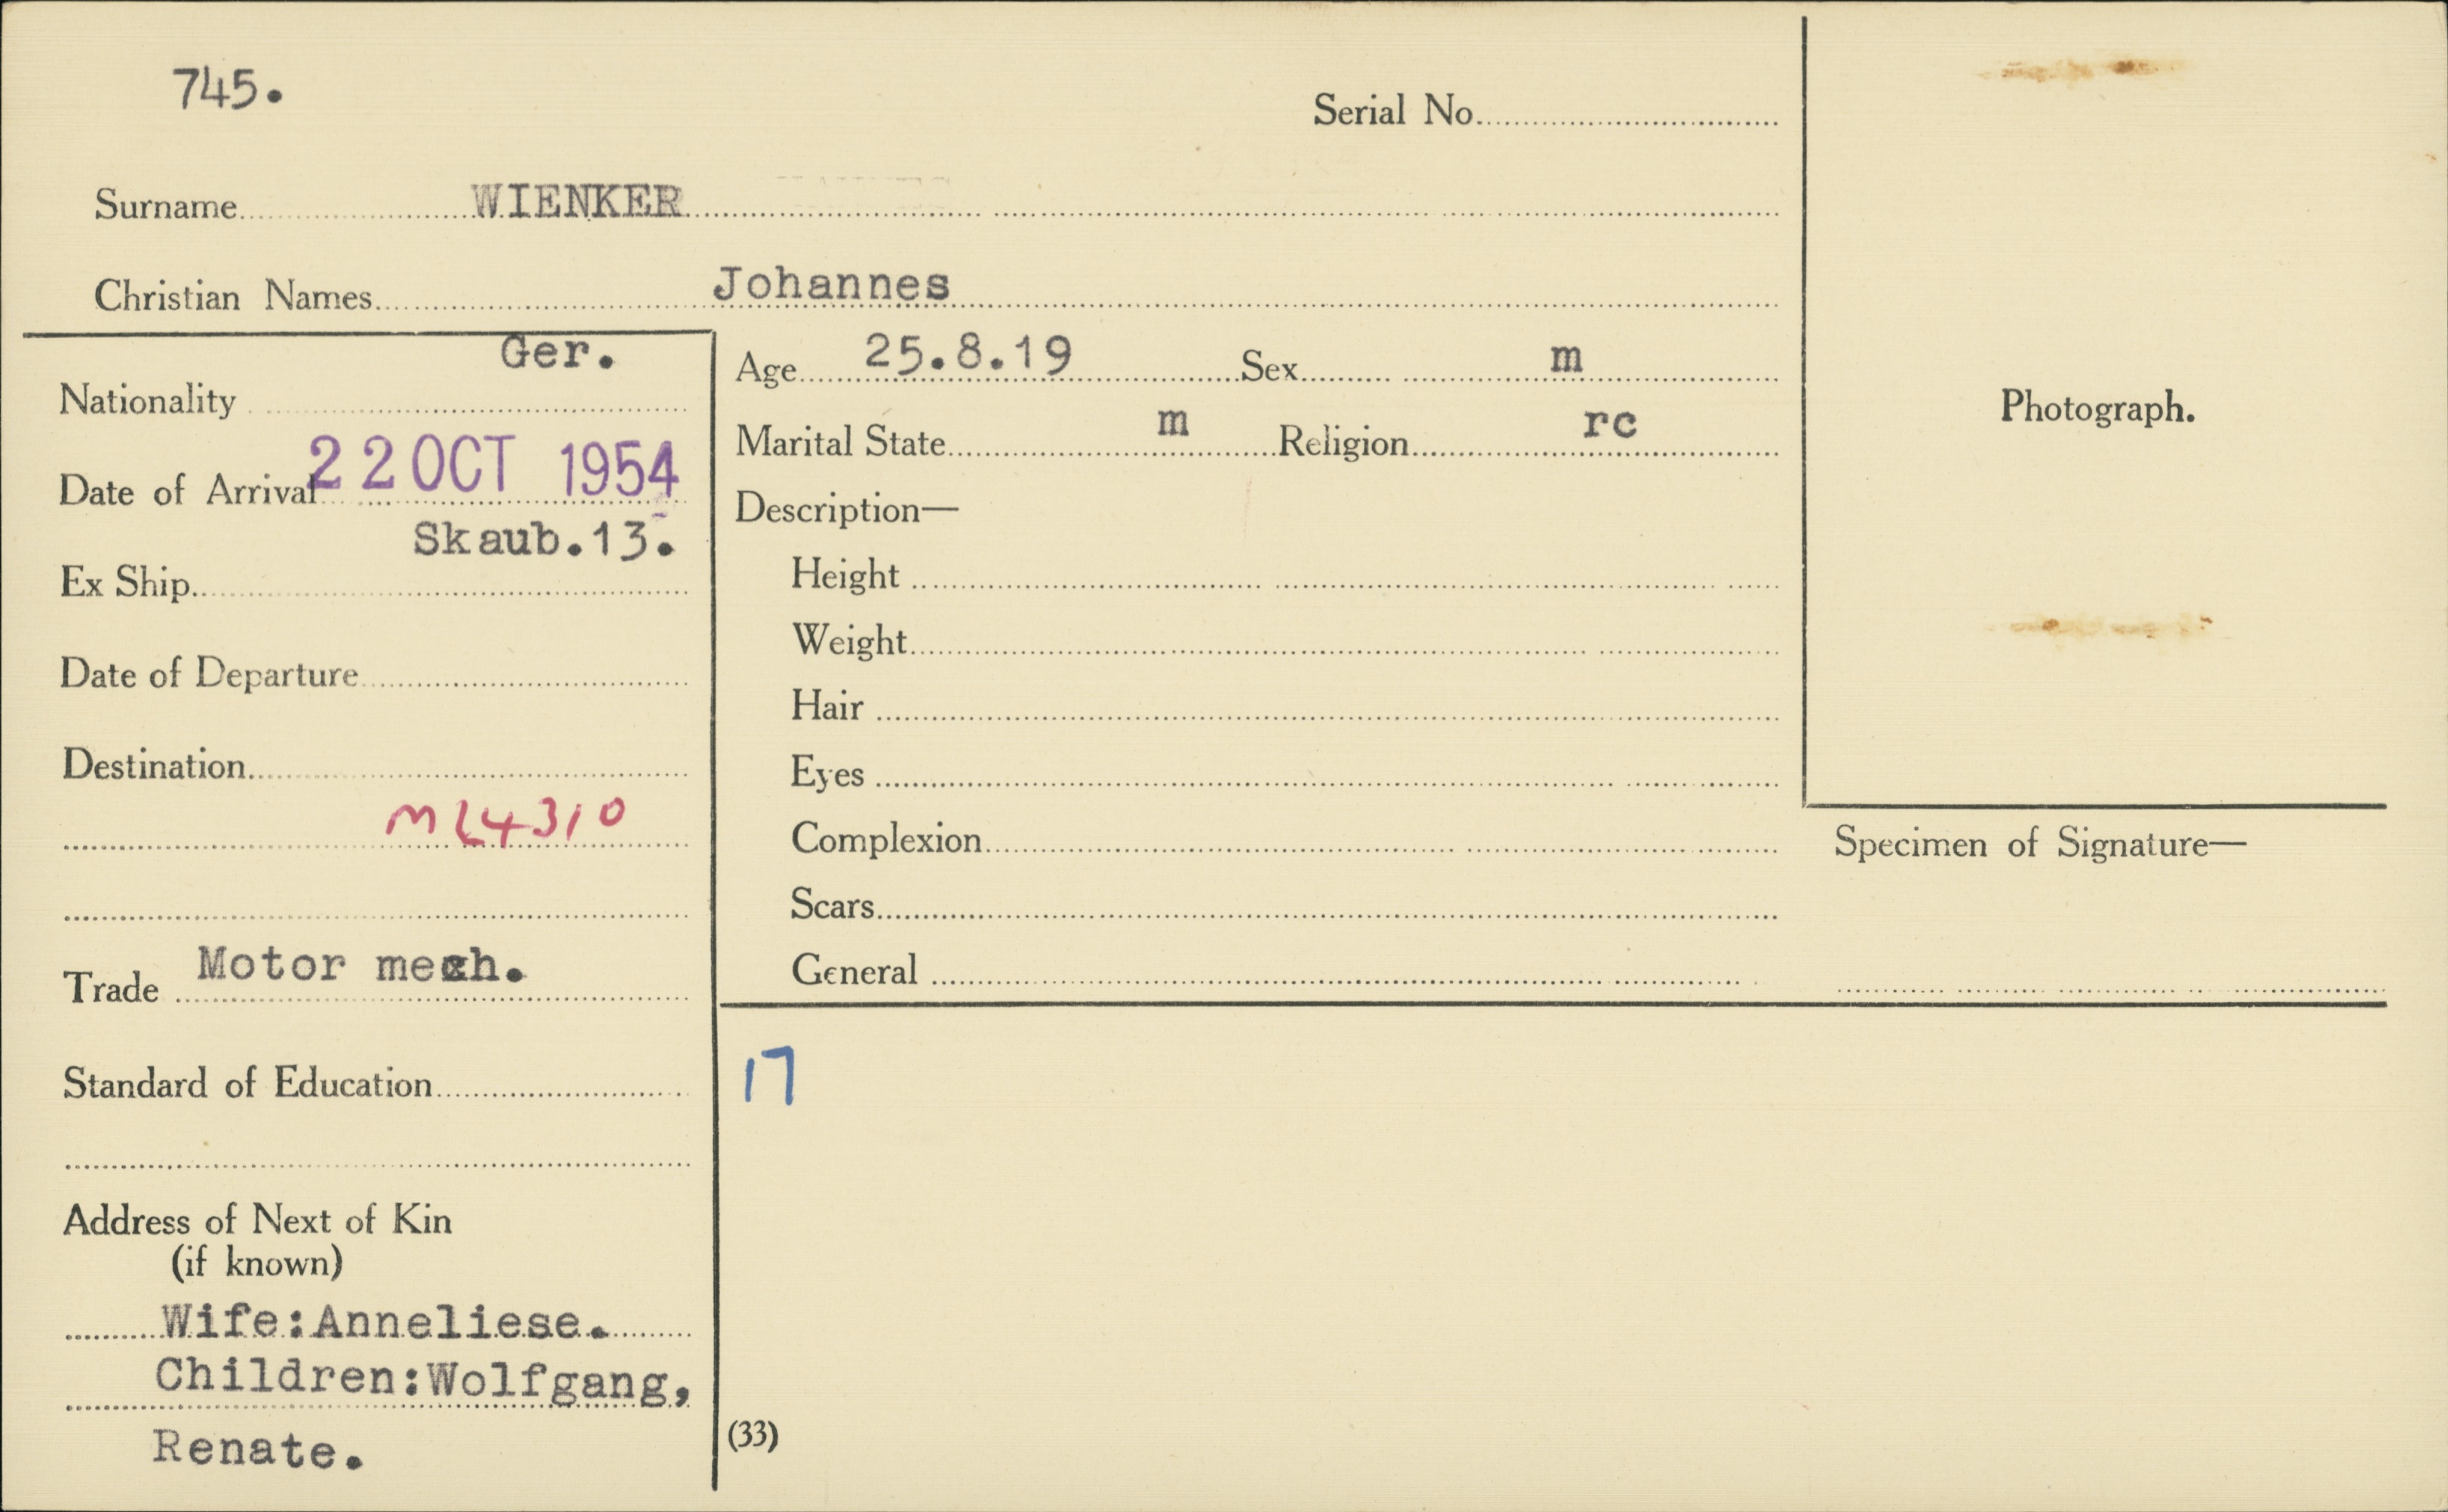 745.
Serial No.
Surname WIENKER
Christian Names Johannes
Ger.
Nationality
Date of Arrival 22 OCT 1954
Skaub.13.
Ex Ship
Date of Departure
Destination
ML4310
Trade Motor mech.
Standard of Education
Address of Next of Kin
(if known)
Wife:Anneliese.
Children:Wolfgang,
Renate.
Age 25.8.19 Sex m
Marital State m Religion rc
Description—
Height
Weight
Hair
Eyes
Complexion
Scars
General
17
(33)
Photograph.
Specimen of Signature—